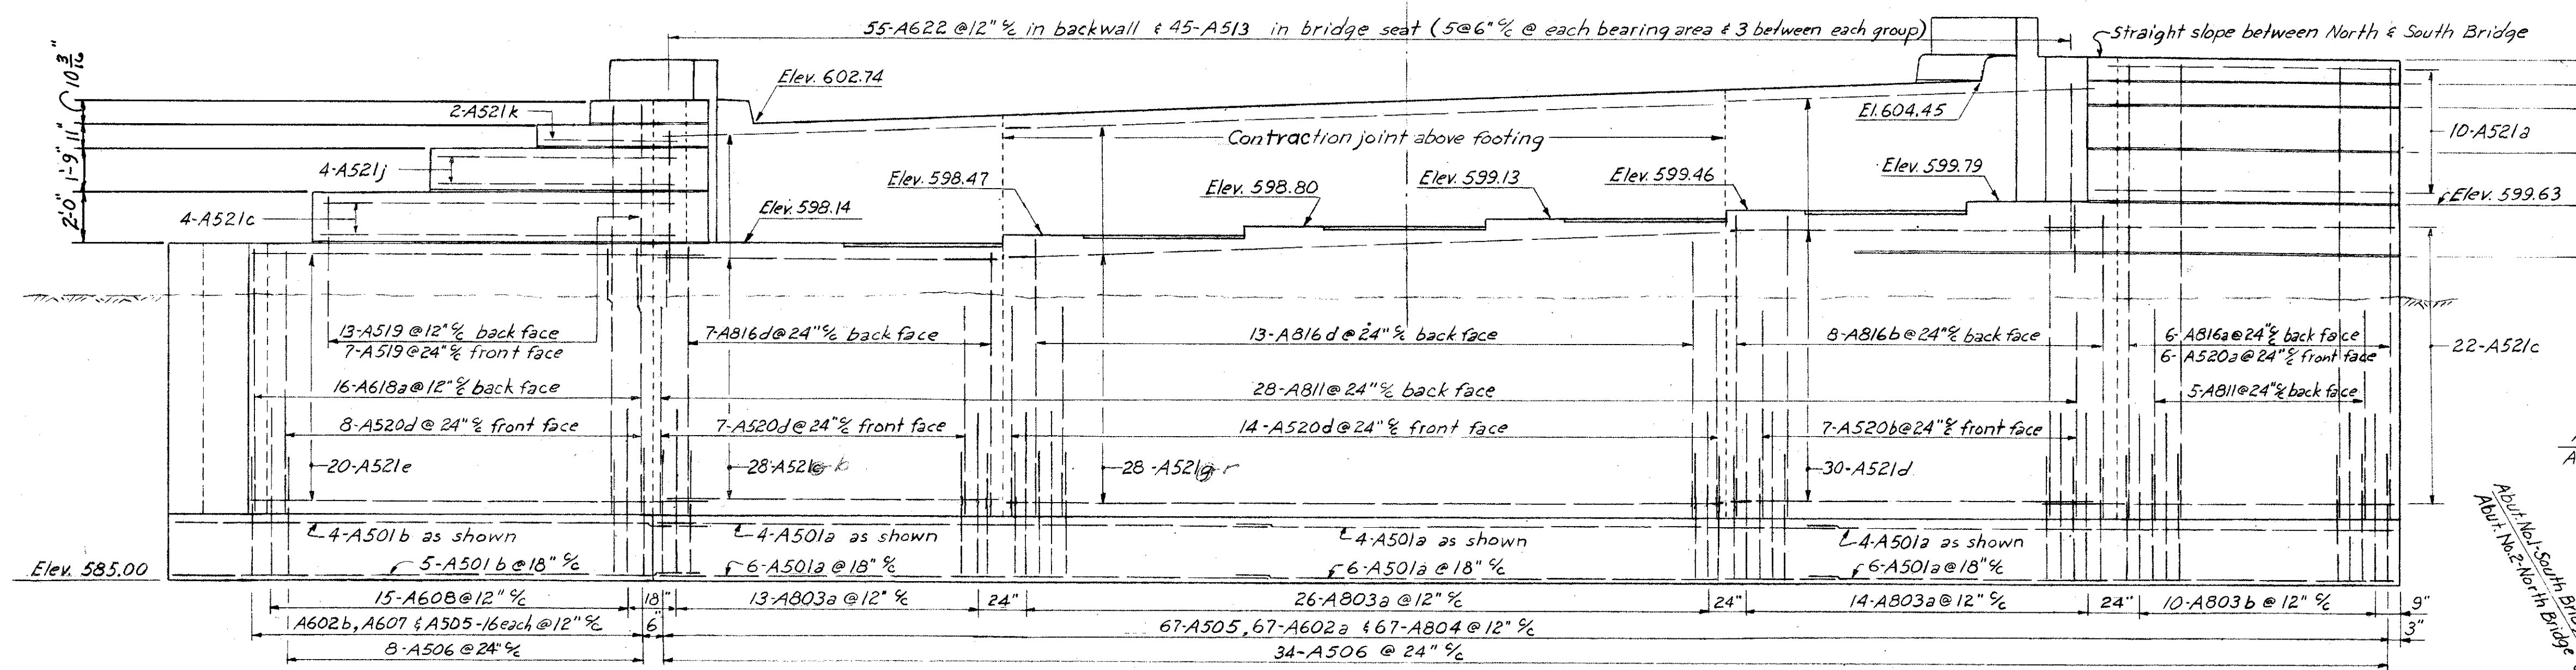 55-A622 @12" c/c in backwall & 45-A513 in bridge seat (5@6" c/c @ each bearing area & 3 between each group)
Straight slope between North & South Bridge
10 3/16"
11"
1'-9"
2'-0"
Elev. 602.74
2-A521k
El. 604.45
10-A521a
Contraction joint above footing
4-A521j
Elev. 598.47
Elev. 598.80
Elev. 599.13
Elev. 599.46
Elev. 599.79
Elev. 599.63
4-A521c
Elev. 598.14
13-A519 @12" c/c back face
7-A519@24" c/c front face
7-A816d@24" c/c back face
13-A816d@24" c/c back face
8-A816b@24" c/c back face
6-A816a@24" c/c back face
6-A520a@24" c/c front face
22-A521c
16-A618a@12" c/c back face
28-A811@24" c/c back face
5-A811@24" c/c back face
8-A520d@24" c/c front face
7-A520d@24" c/c front face
14-A520d@24" c/c front face
7-A520b@24" c/c front face
20-A521e
28-A521
28-A521
30-A521d
4-A501b as shown
4-A501a as shown
4-A501a as shown
4-A501a as shown
Elev. 585.00
5-A501b@18" c/c
6-A501a@18" c/c
6-A501a@18" c/c
6-A501a@18" c/c
15-A608@12" c/c
18"
13-A803a@12" c/c
24"
26-A803a@12" c/c
24"
14-A803a@12" c/c
24"
10-A803b@12" c/c
9"
A602b, A607 & A505-16each@12" c/c
6"
67-A505, 67-A602a & 67-A804@12" c/c
3"
8-A506@24" c/c
34-A506 @ 24" c/c
Abut. No.1-South Bridge
Abut. No.2-North Bridge